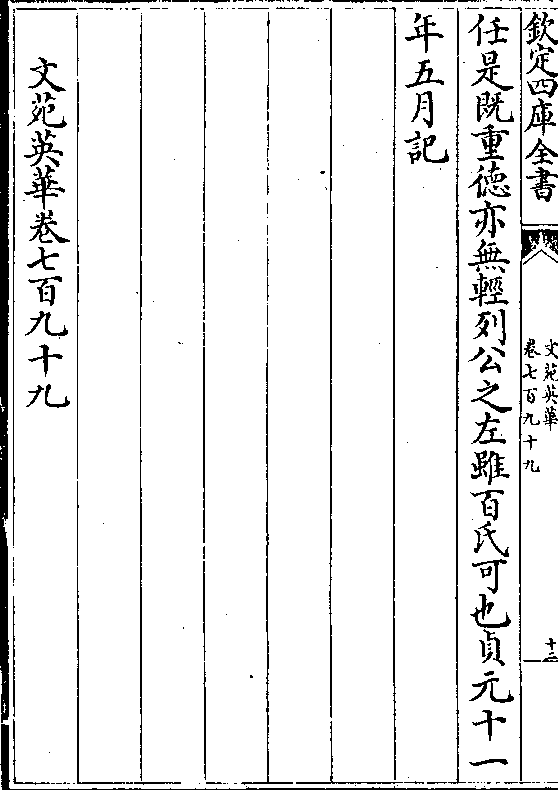 欽定四庫全書
文苑英華
卷七百九十九
十三
任是既重德亦無輕列公之左雖百氏可也貞元十一
年五月記
文苑英華卷七百九十九